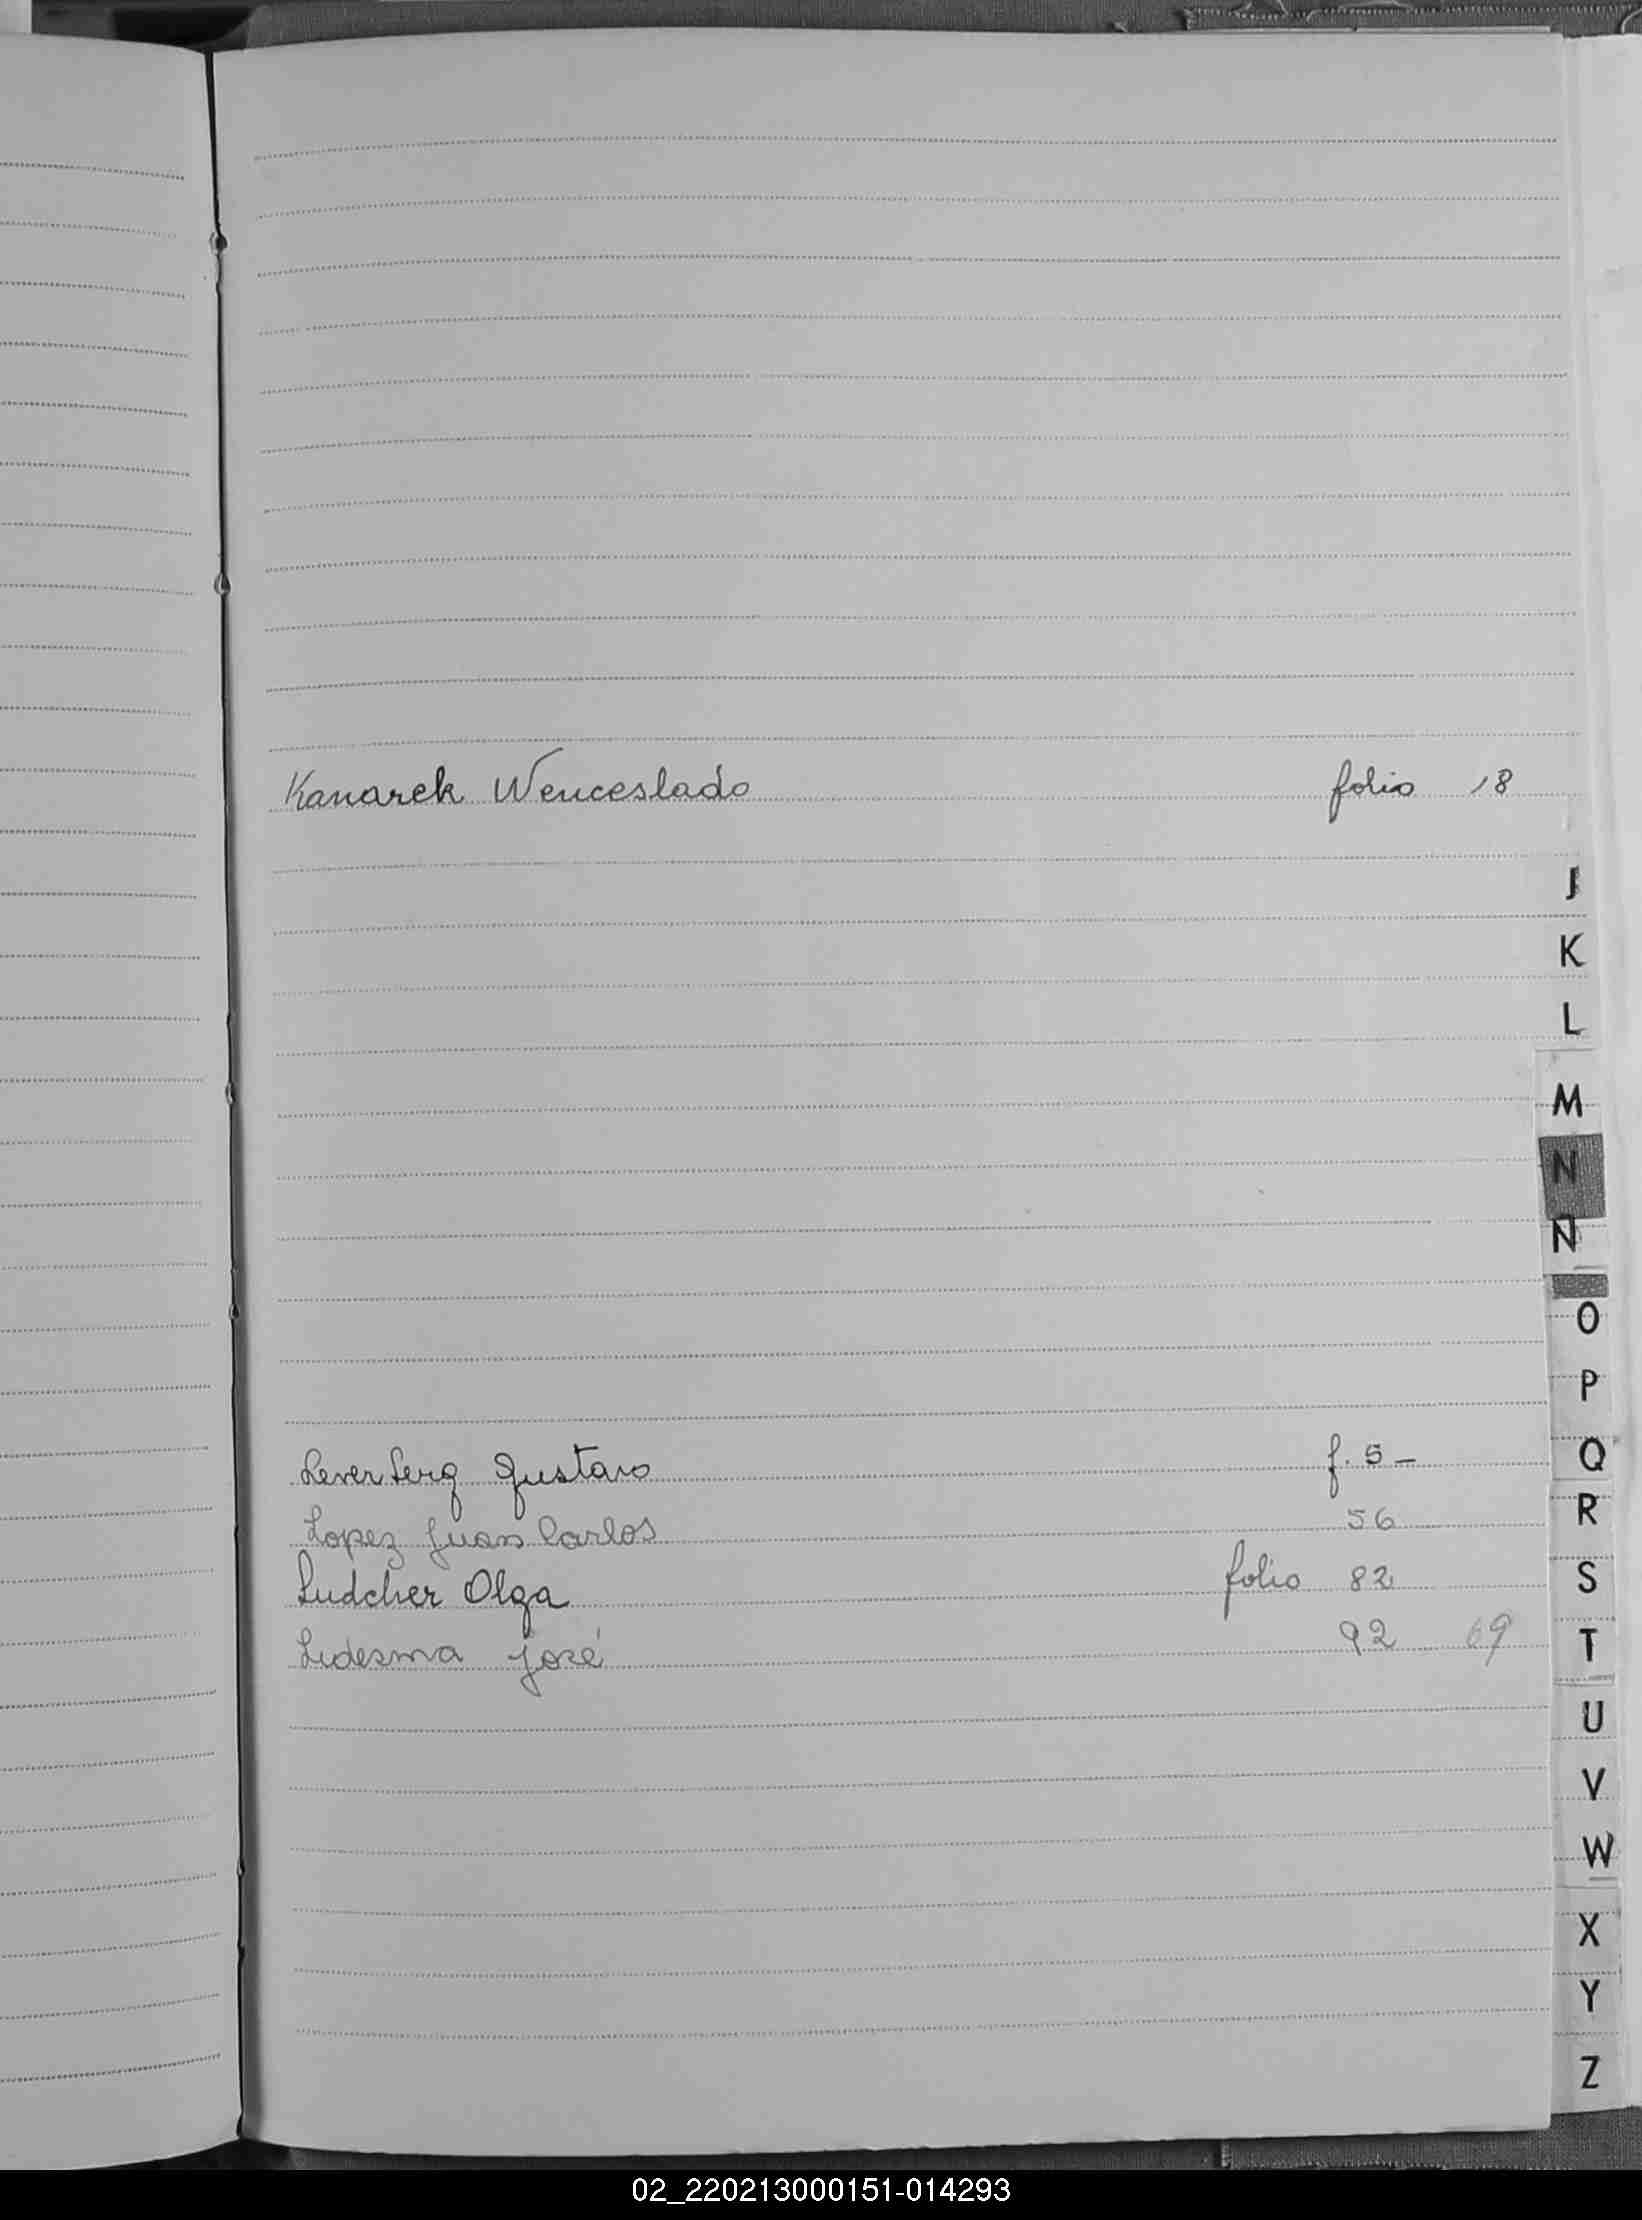 Kanarek Wenceslado folio 18
J
K
L
M
N
Ñ
O
P
Q
R
S
T
U
V
W
X
Y
Z
Leverberg Gustavo f. 5 -
Lopez Juan Carlos 56
Ludcher Olga folio 82
Ledesma José 92 69
02_220213000151-014293